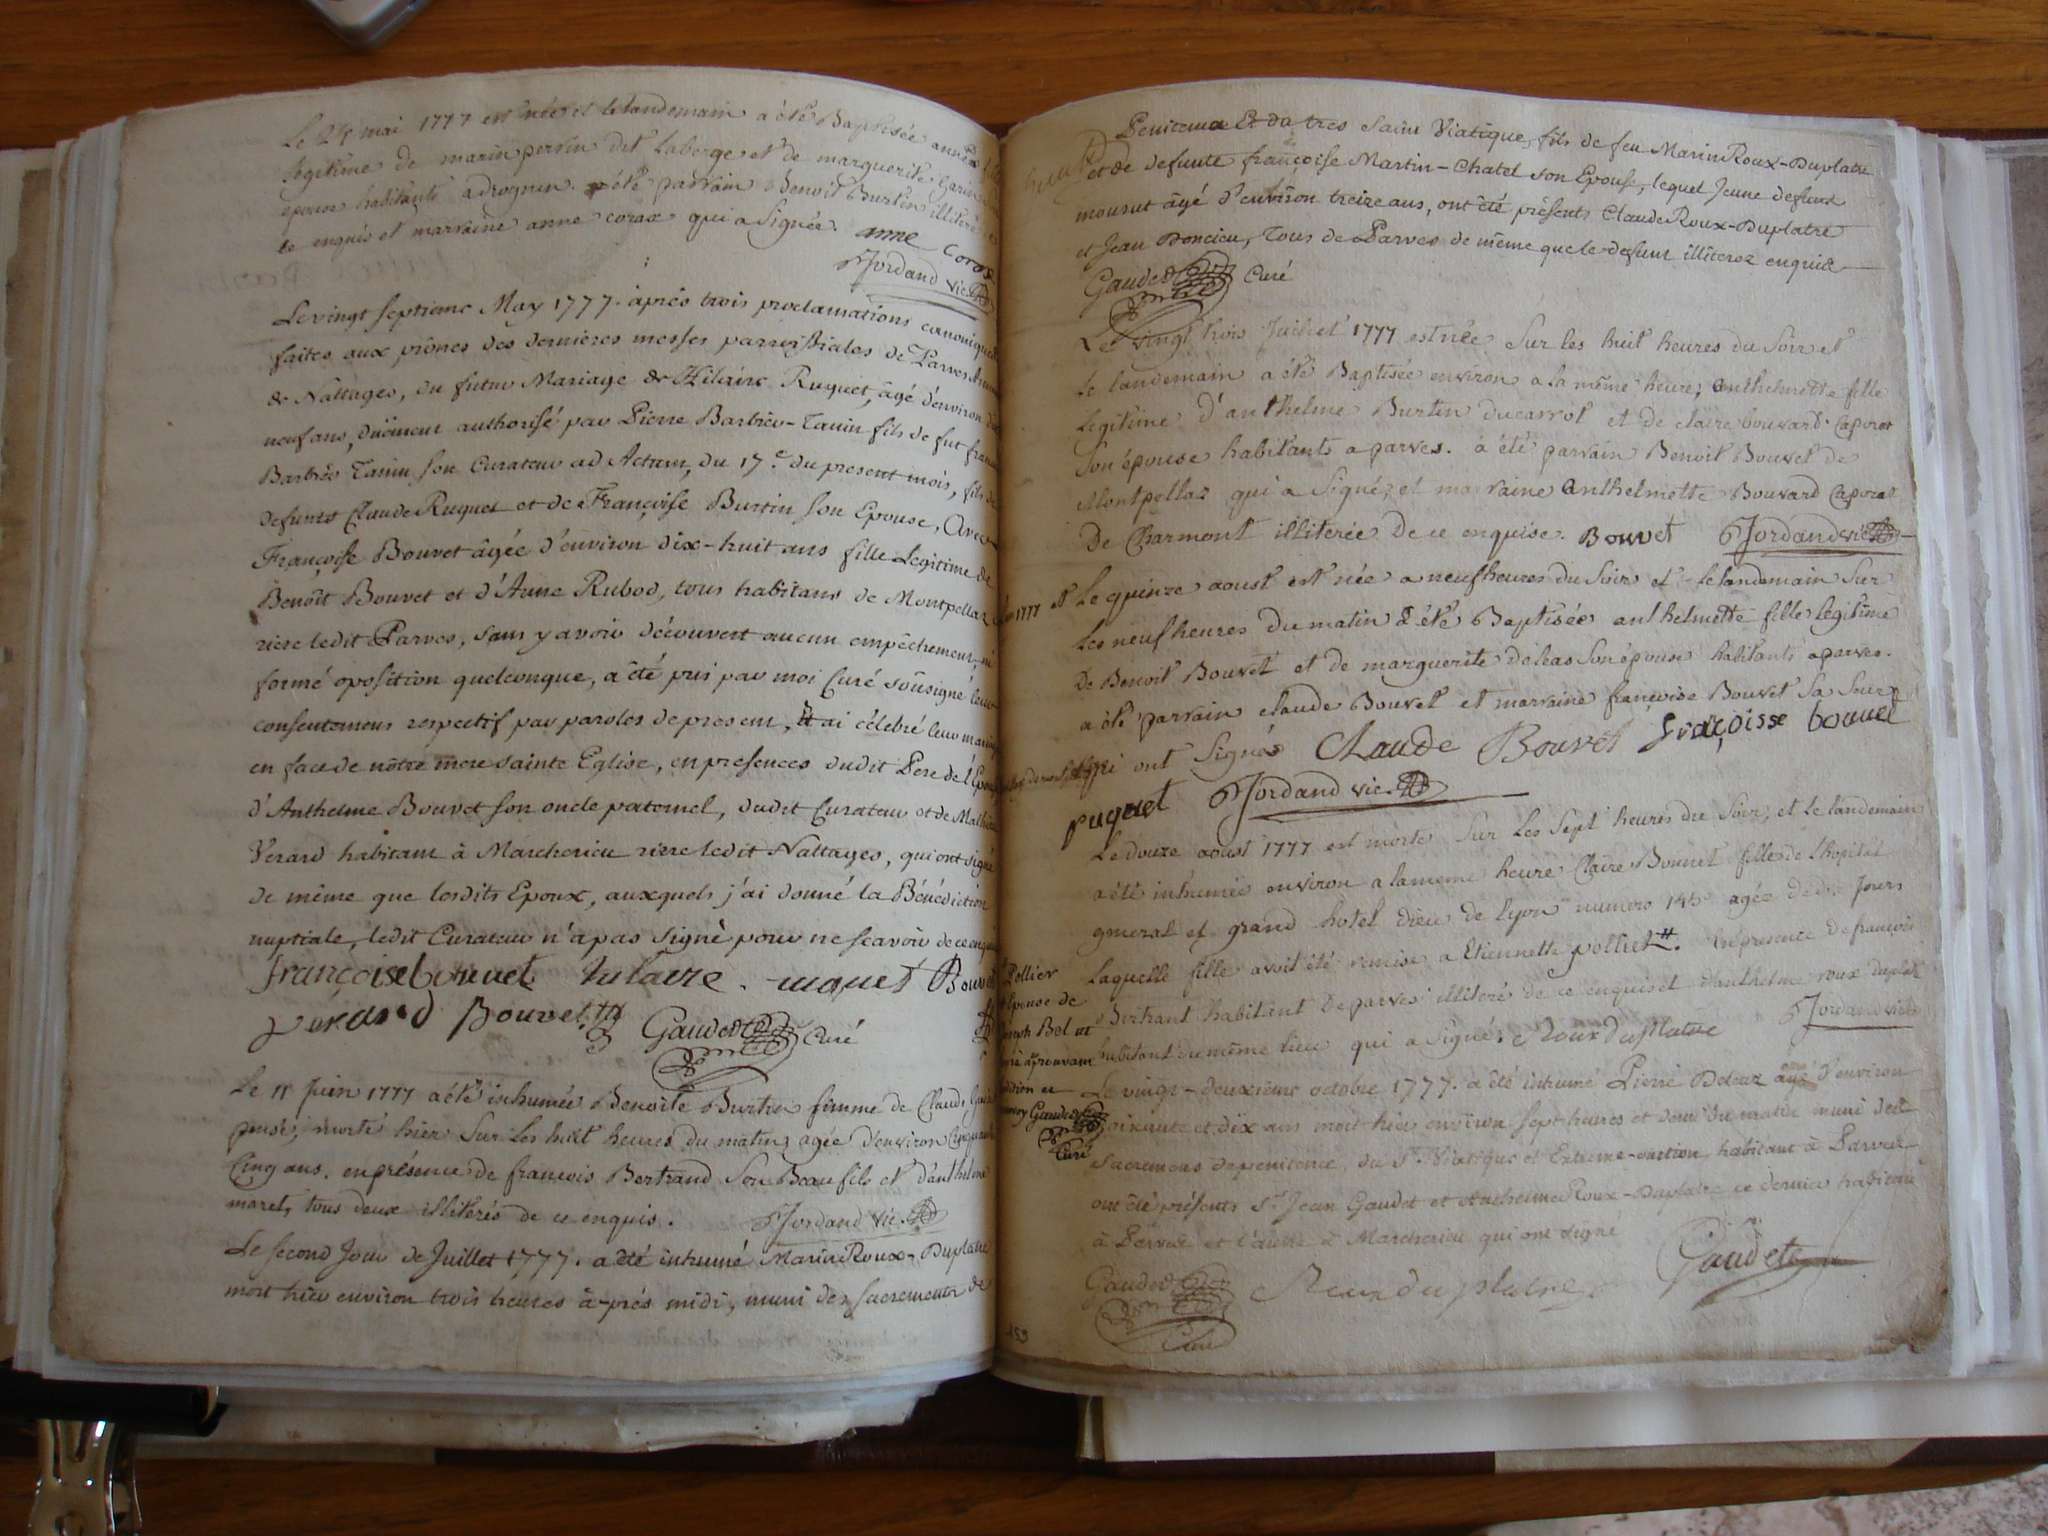 Le 24 mai 1777 est née et le landemain a été Baptisée anne fille
légitime de marin perrin dit laberge et de marguerite
épouse habitants a drognin. a été parrain Benoit Burtin illiteré
de enquis et marraine anne corax qui a Signée. anne Corax
Jordand vic.
Le vingt septieme May 1777. après trois proclamations canoniques
faites aux prônes des dernieres messes parroissiales de Parves
de Nattages, du futur Mariage de Hilaire Ruquet, âgé d'environ dix
neuf ans, dûement authorisé par Pierre Barbier-Tanin fils de fut
Barbier Tanin son Curateur ad Actum, du 17.e du present mois, fils de
defunts Claude Ruquet et de Françoise Burtin son Epouse, Avec
Françoise Bouvet âgée d'environ dix-huit ans fille Legitime de
Benoît Bouvet et d'Anne Rubod, tous habitans de Montpellaz
riere ledit Parves, sans y avoir découvert aucun empêchement, ni
formé oposition quelconque, a été pris par moi Curé soûsigné leur
consentemens respectif par paroles de present, Et ai célébré leur mariage
en face de nôtre mere sainte Eglise, en presences dudit Pere de l'Epouse
d'Anthelme Bouvet son oncle paternel, dudit Curateur et de Mathieu
Verard habitant à Marcherieu riere ledit Nattages, qui ont signé
de même que lesdits Epoux, auxquels j'ai donné la Bénédiction
nuptiale, ledit Curateur n'a pas signé pour ne sçavoir de ce enquis
françoise bouvet hilaire ruquet Bouvet
verard Bouvet Gaudet Curé
Le 11 Juin 1777 a été inhumée Benoite Burtin femme de Claude
morte hier Sur Les huit heures du matin, agée d'environ Cinquante
Cinq ans. en présence de françois Bertrand Son Beau fils et d'anthelme
maret, tous deux illiterés de ce enquis. Jordand vic.
Le second Jour de Juillet 1777. a été inhumé Marin Roux-Duplatre
mort hier environ trois heures à-prés midi, muni des sacremens de
Penitence Et du tres saint Viatique, fils de feu Marin Roux-Duplatre
et de defunte françoise Martin-Chatel son Epouse, lequel Jeune defunt
mourut âgé d'environ treize ans, ont été présents Claude Roux-Duplatre
et Jean Doncieu, Tous de Parves de même que le defunt illiterez enquis
Gaudet Curé
Le vingt trois Juillet 1777 est née Sur les huit heures du Soir et
le landemain a été Baptisée environ a la même heure, anthelmette fille
Legitime d'anthelme Burtin ducarrot et de claire bouvard Caporat
Son épouse habitants a parves. a été parrain Benoit Bouvet de
Montpellaz qui a Signé, et marraine anthelmette Bouvard Caporat
De Charmont illiterée De ce enquise. Bouvet Jordand vic.
1777 et Le quinze aoust est née a neuf heures du Soir et le landemain Sur
Les neuf heures du matin a été Baptisée anthelmette fille légitime
De Benoit Bouvet et de marguerite déléas Son épouse habitants a parves.
a été parrain claude Bouvet et marraine françoise Bouvet Sa Soeur
qui ont Signés Claude Bouvet françoisse bouuet
ruquet Jordand vic.
Le douze aoust 1777 est morte Sur Les Sept heures du Soir, et le landemain
a été inhumée environ a la meme heure Claire Bonnet fille de l'hopital
general et grand hotel dieu de Lyon numero agée de dix Jours
Laquelle fille avoit été remise a Etiennette pollier #. En presence de françois
Bertrant habitant de parves illiteré de ce enquis et d'anthelme roux duplatre
habitant du même lieu qui a Signé. Roux Duplatre Jordand vic.
# Pollier
Epouse de
Joseph Belut
aprouvant
addition ce
Gaudet
Curé
Le vingt-deuxieme octobre 1777. a été inhumé Pierre Deleaz âgé d'environ
soixante et dix ans mort hier environ sept heures et demi du matin muni des
sacremens de penitence, du St. Viatique et Extreme-onction, habitant à Parves
ont été présents Sr. Jean Gaudet et Anthelme Roux-Duplatre ce dernier habitant
à Parves et l'autre à Marcherieu qui ont signé
Gaudet Roux duplatre Gaudet
Curé
153